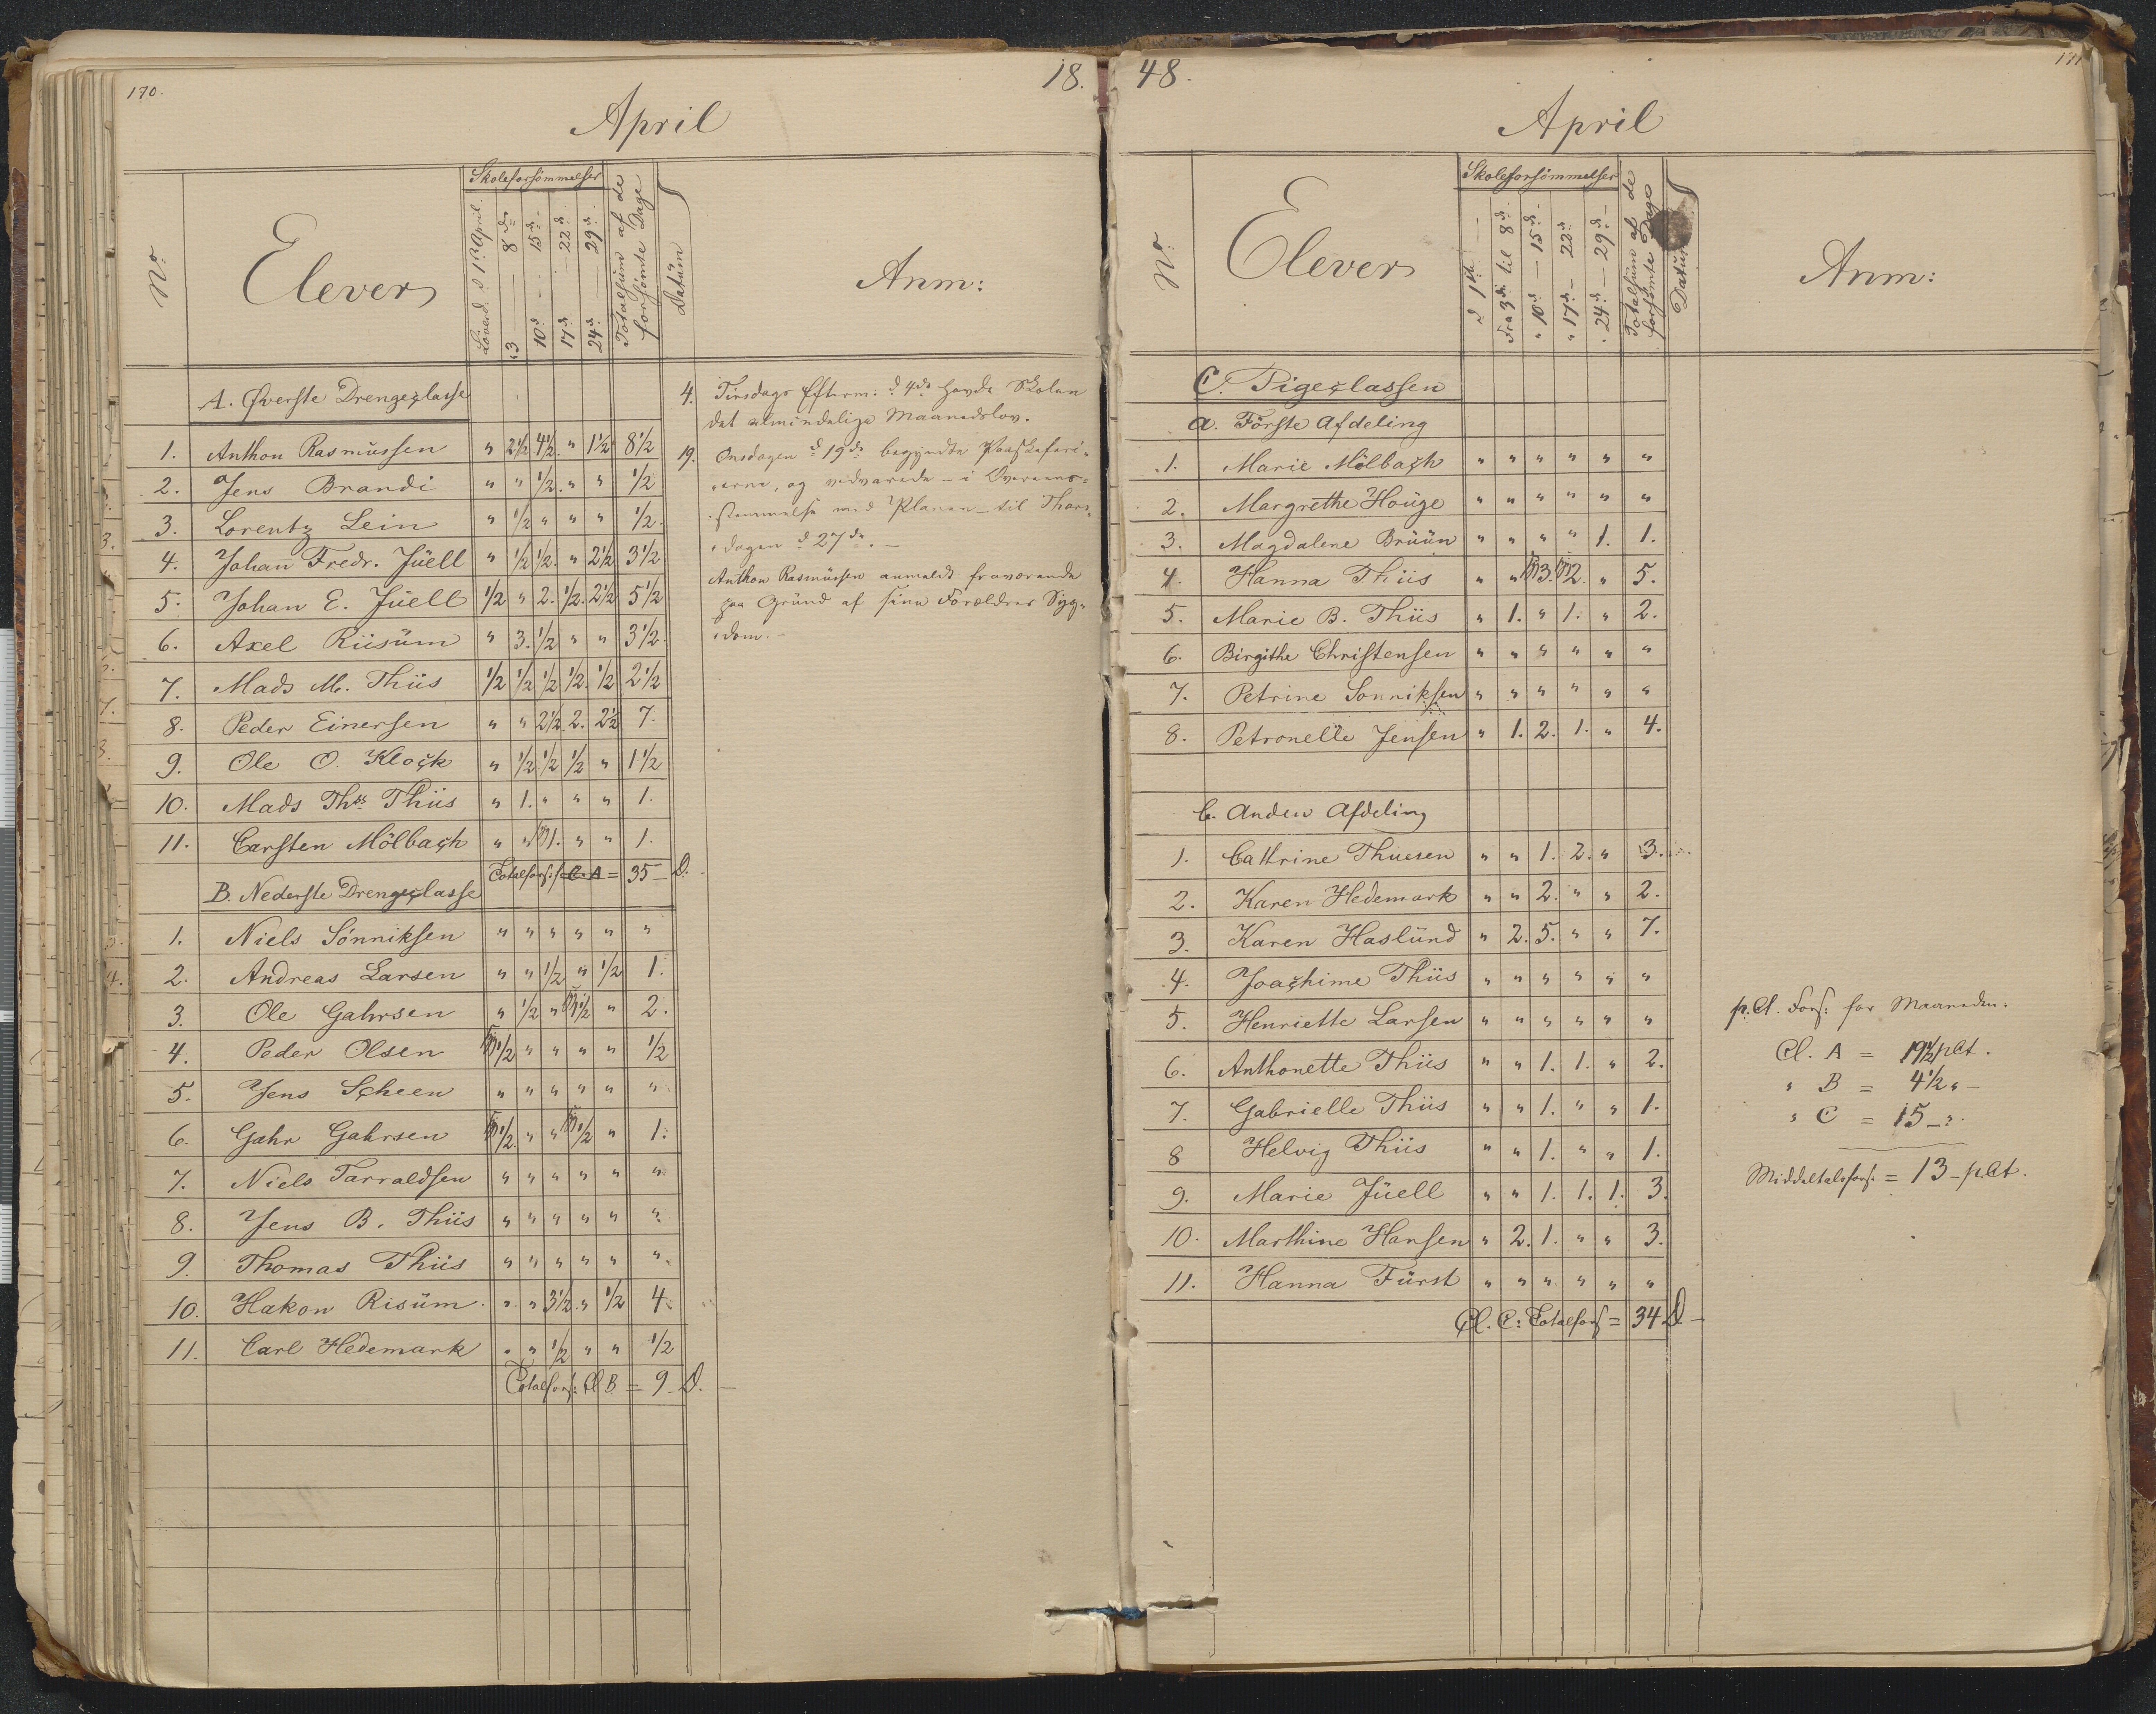 170.
18.
April
No:
Elever
Skoleforsömmelser
Löverd. d 1ste April.
3 — 8de
10de — 15de
17de — 22de
24de — 29de
Totalsüm af de
forsömte Dage
Datüm
Anm:
A. Øverste Drengeclasse
1. Anthon Rasmüssen " 2½ 4½. " 1½ 8½
2. Jens Brandi " " ½. " " ½
3. Lorentz Lein " ½ " " " ½.
4. Johan Fredr. Jüell " ½ ½. " 2½ 3½
5. Johan E. Jüell ½ " 2. ½. 2½ 5½
6. Axel Riisüm " 3. ½ " " 3½.
7. Mads M. Thiis ½ ½ ½ ½. ½ 2½
8. Peder Einersen " " 2½. 2. 2½ 7.
9. Ole O. Klock " ½ ½ ½ " 1½
10. Mads Ths Thiis " 1. " " " 1.
11. Carsten Mölbach " " 1. " " 1.
Totalfors: Cl. A = 35 – D.
B. Nederste Drengeclasse
1. Niels Sönniksen " " " " " "
2. Andreas Larsen " " ½ " ½ 1.
3. Ole Gahrsen " ½ " 1½ " 2.
4. Peder Olsen ½ " " " " ½
5. Jens Scheen " " " " " "
6. Gahr Gahrsen ½ " " ½ " 1.
7. Niels Tarraldsen " " " " " "
8. Jens B. Thiis " " " " " "
9. Thomas Thiis " " " " " "
10. Hakon Risüm " " 3½. " ½ 4.
11. Carl Hedemark " " ½ " " ½
Totalfors: Cl B. = 9 – D. –
4. Tirsdags Efterm: d 4de havde Skolen
det almindelige Maanedslov.
19. Onsdagen d 19de begyndte Paaskeferi-
erne, og vedvarede – i Overeens-
stemmelse med Planen – til Thors-
dagen d 27de. –
Anthon Rasmüssen anmeldt fraværende
paa Gründ af sine Forældres Syg-
dom. –
48.
171
April
No:
Elever
Skoleforsömmelser
d 1ste —
Fra 3die til 8de
" 10de — 15de
" 17de — 22de
" 24de — 29de
Totalsüm af de
forsömte Dage
Datüm
Anm:
C. Pigeclassen
a. Förste Afdeling
1. Marie Mölbach " " " " " "
2. Margrethe Houge " " " " " "
3. Magdalene Brüün " " " " 1. 1.
4. Hanna Thiis " " 3. 2. " 5.
5. Marie B. Thiis " 1. " 1. " 2.
6. Birgithe Christensen " " " " " "
7. Petrine Sonniksen " " " " " "
8. Petronelle Jensen " 1. 2. 1. " 4.
b. Anden Afdeling
1. Cathrine Thuesen " " 1. 2. " 3.
2. Karen Hedemark " " 2. " " 2.
3. Karen Haslünd " 2. 5. " " 7.
4. Joachime Thiis " " " " " "
5. Henriette Larsen " " " " " "
6. Anthonette Thiis " " 1. 1. " 2.
7. Gabrielle Thiis " " 1. " " 1.
8 Helvig Thiis " " 1. " " 1.
9. Marie Jüell " " 1. 1. 1. 3.
10. Marthine Hansen " 2. 1. " " 3.
11. Hanna Fürst " " " " " "
Cl. C: Totalfors = 34 D. –
p.Ct. Fors: for Maaneden:
Cl. A = 19½ pCt.
" B = 4½ " –
" C = 15 – ".
Middeltalsfors: = 13 – pCt.